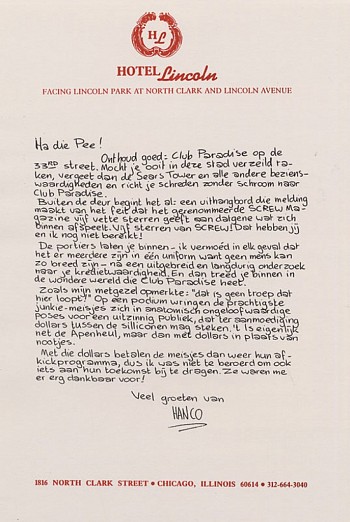 HL
HOTEL Lincoln
FACING LINCOLN PARK AT NORTH CLARK AND LINCOLN AVENUE
Ha die Pee!
Onthoud goed: Club Paradise op de
33RD street. Mocht je ooit in deze stad verzeild ra-
ken, vergeet dan de Sears Tower en alle andere beziens-
waardigheden en richt je schreden zonder schroom naar
Club Paradise.
Buiten de deur begint het al: een uithangbord die melding
maakt van het feit dat het gerenommeerde SCREW Ma-
gazine vijf vette sterren geeft aan datgene wat zich
binnen afspeelt. Vijf sterren van SCREW! Dat hebben jij
en ik nog niet bereikt!
De portiers laten je binnen - ik vermoed in elk geval dat
het er meerdere zijn in één uniform want geen mens kan
zo breed zijn - na een uitgebreid en langdurig onderzoek
naar je kredietwaardigheid. En dan treed je binnen in
de wondere wereld die Club Paradise heet.
Zoals mijn metgezel opmerkte: "dat is geen troep dat
hier loopt!" Op een podium wringen de prachtigste
junkie-meisjes zich in anatomisch ongeloofwaardige
poses voor een uitzinnig publiek, dat ter aanmoediging
dollars tussen de silliconen mag steken. 't Is eigenlijk
net de Apenheul, maar dan met dollars in plaats van
nootjes.
Met die dollars betalen de meisjes dan weer hun af-
kickprogramma, dus ik was niet te beroerd om ook
iets aan hun toekomst bij te dragen. Ze waren me
er erg dankbaar voor!
Veel groeten van
HANCO
1816 NORTH CLARK STREET • CHICAGO, ILLINOIS 60614 • 312-664-3040